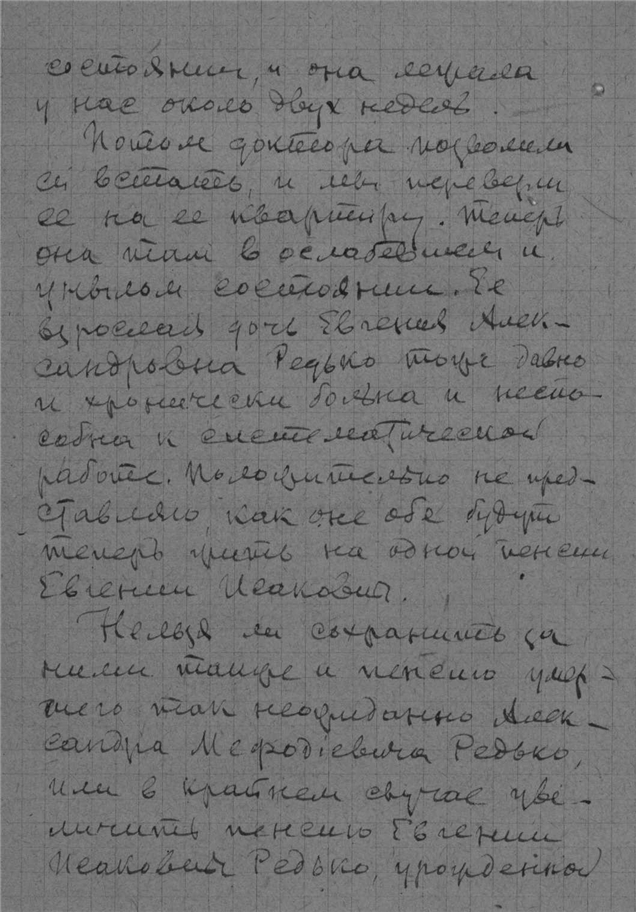 состоянии, и она лежала
у нас около двух недель.
Потом доктора позволили
ей встать, и мы перевезли
ее на ее квартиру. Теперь
она там в ослабевшем и
унылом состоянии. Ее
взрослая дочь Евгения Алек-
сандровна Редько тоже давно
и хронически больна и неспо-
собна к систематической
работе. Положительно не пред-
ставляю, как оне обе будут
теперь жить на одной пенсии
Евгении Исаковны.
Нельзя ли сохранить за
ними также и пенсию умер-
шего так неожиданно Алек-
сандра Мефодіевича Редько,
или в крайнем случае уве-
личить пенсию Евгении
Исаковны Редько, урожденной